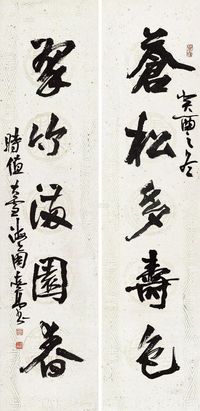 癸酉之冬
蒼松多壽色
翠竹滿園春
時值大雪